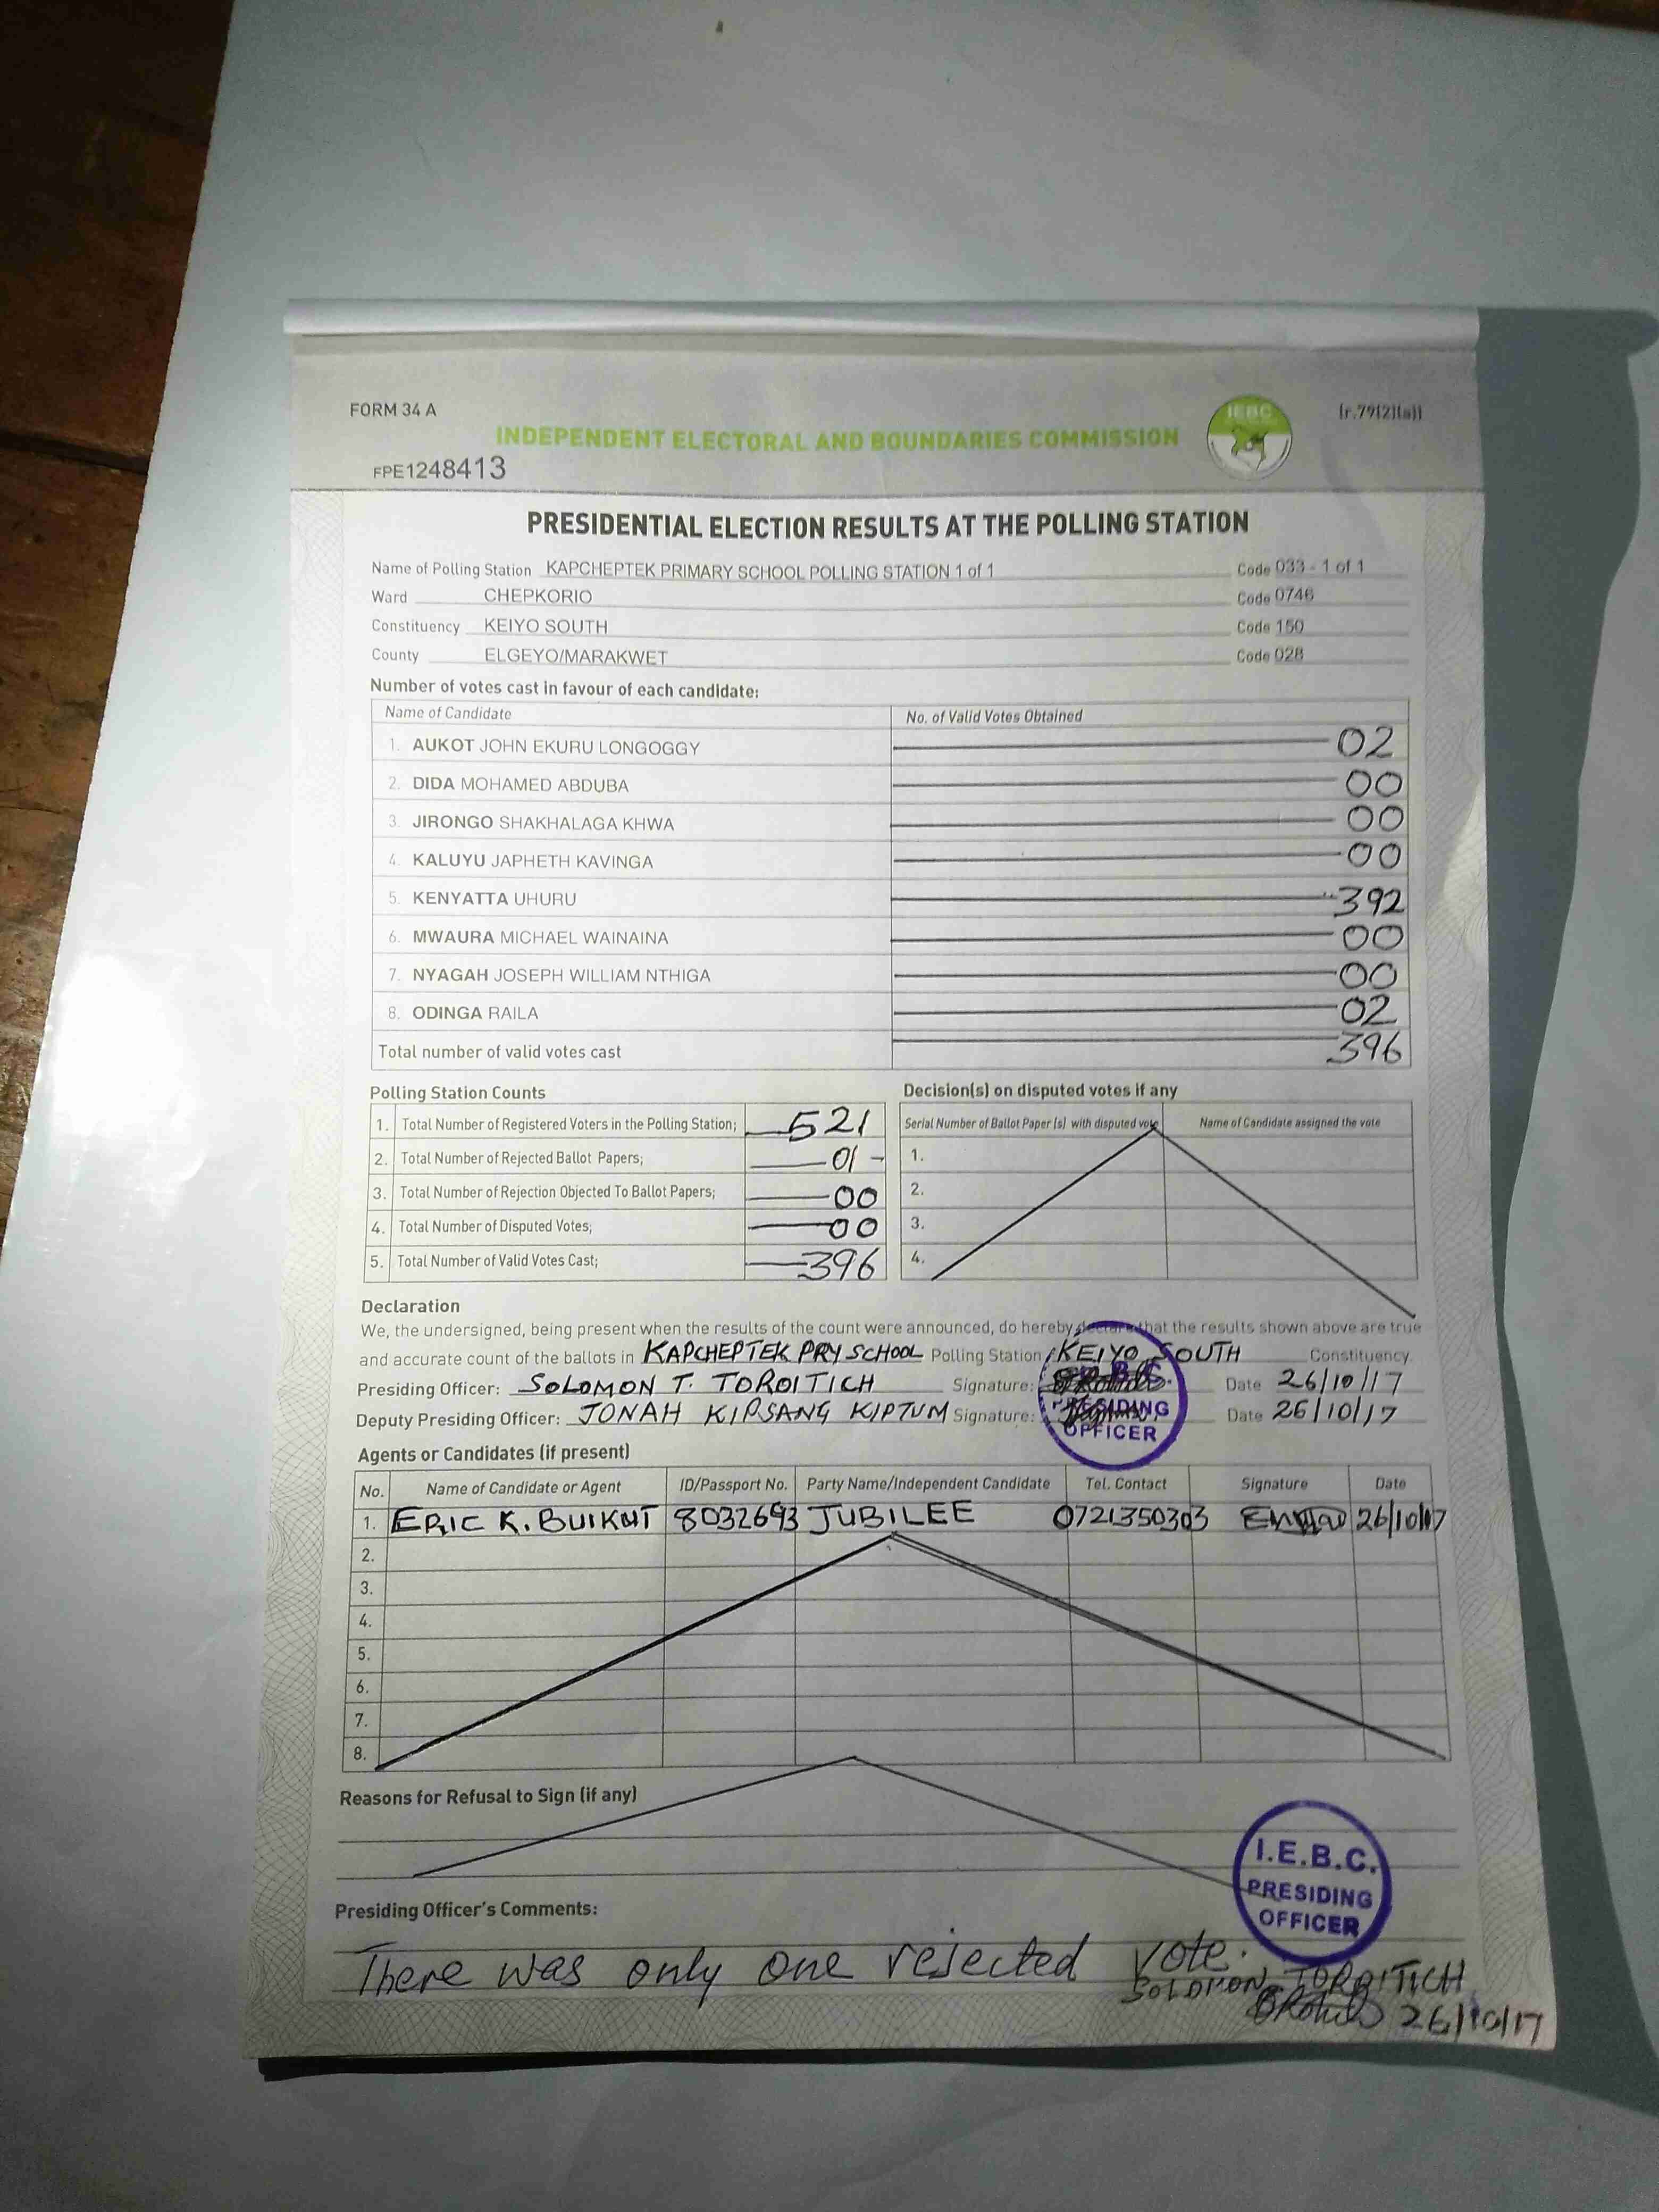 FORM 34 A
IEBC
(r.79(2)(a))
INDEPENDENT ELECTORAL AND BOUNDARIES COMMISSION
FPE1248413
PRESIDENTIAL ELECTION RESULTS AT THE POLLING STATION
Name of Polling Station KAPCHEPTEK PRIMARY SCHOOL POLLING STATION 1 of 1 Code 033 - 1 of 1
Ward CHEPKORIO Code 0746
Constituency KEIYO SOUTH Code 150
County ELGEYO/MARAKWET Code 028
Number of votes cast in favour of each candidate:
Name of Candidate No. of Valid Votes Obtained
1. AUKOT JOHN EKURU LONGOGGY 02
2. DIDA MOHAMED ABDUBA 00
3. JIRONGO SHAKHALAGA KHWA 00
4. KALUYU JAPHETH KAVINGA 00
5. KENYATTA UHURU 392
6. MWAURA MICHAEL WAINAINA 00
7. NYAGAH JOSEPH WILLIAM NTHIGA 00
8. ODINGA RAILA 02
Total number of valid votes cast 396
Polling Station Counts
1. Total Number of Registered Voters in the Polling Station; 521
2. Total Number of Rejected Ballot Papers; 01
3. Total Number of Rejection Objected To Ballot Papers; 00
4. Total Number of Disputed Votes; 00
5. Total Number of Valid Votes Cast; 396
Decision(s) on disputed votes if any
Serial Number of Ballot Paper (s) with disputed vote Name of Candidate assigned the vote
1.
2.
3.
4.
Declaration
We, the undersigned, being present when the results of the count were announced, do hereby declare that the results shown above are true
and accurate count of the ballots in KAPCHEPTEK PRY SCHOOL Polling Station KEIYO SOUTH Constituency.
Presiding Officer: SOLOMON T. TOROITICH Signature: Date 26/10/17
Deputy Presiding Officer: JONAH KIPSANG KIPTUM Signature: Date 26/10/17
PRESIDING
OFFICER
Agents or Candidates (if present)
No. Name of Candidate or Agent ID/Passport No. Party Name/Independent Candidate Tel. Contact Signature Date
1. ERIC K. BUIKUT 8032693 JUBILEE 0721350303 26/10/17
2.
3.
4.
5.
6.
7.
8.
Reasons for Refusal to Sign (if any)
I.E.B.C.
PRESIDING
OFFICER
Presiding Officer's Comments:
There was only one rejected vote.
SOLOMON TOROITICH
26/10/17